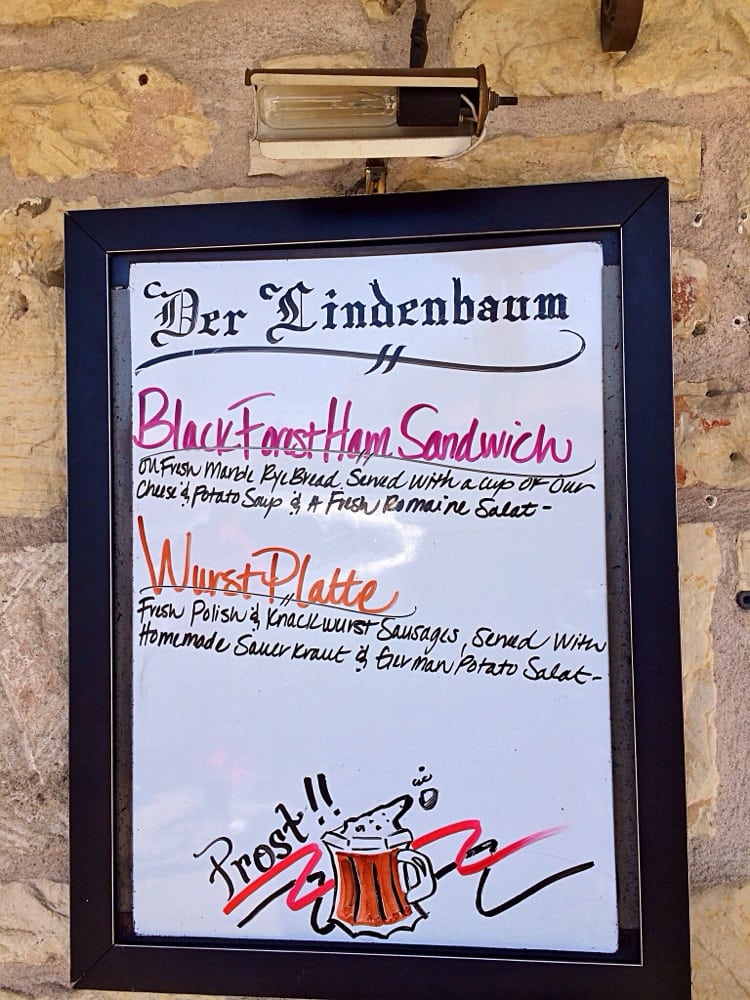 Der Lindenbaum
Black Forest Ham Sandwich
on Fresh Marble Rye Bread. Served with a cup of Our
Cheese & Potato Soup & A Fresh Romaine Salat -
Wurst Platte
Fresh Polish & Knackwurst Sausages, Served With
Homemade Sauerkraut & German Potato Salat -
Prost!!